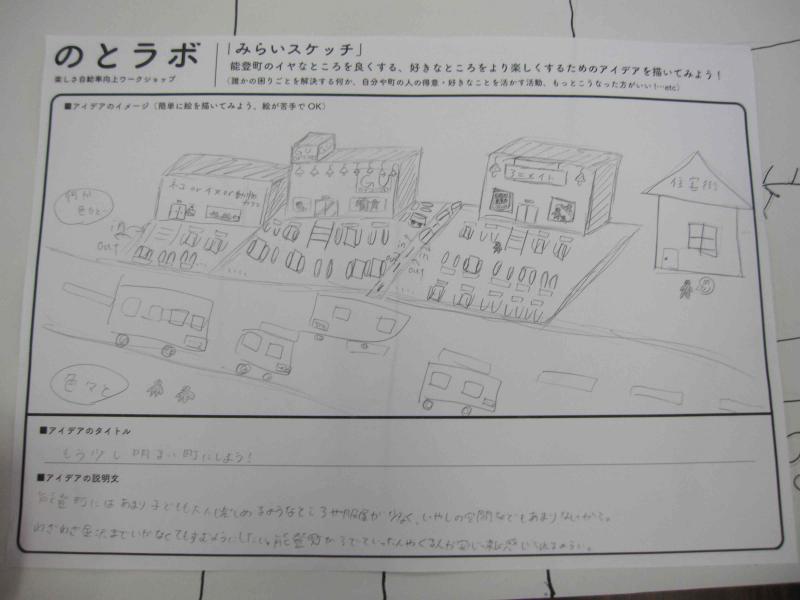 のとラボ
楽しさ自給率向上ワークショップ
「みらいスケッチ」
能登町のイヤなところを良くする、好きなところをより楽しくするためのアイデアを描いてみよう！
（誰かの困りごとを解決する何か、自分や町の人の得意・好きなことを活かす活動、もっとこうなった方がいい！…etc）
■アイデアのイメージ（簡単に絵を描いてみよう、絵が苦手でOK）
ネコorイヌor動物
カフェ
アニメイト
住宅街
out
in
in
out
色々と
■アイデアのタイトル
もう少し明るい町にしよう！
■アイデアの説明文
能登町にはあまり子どもも大人も楽しめるようなところや服屋が少なく、いやしの空間などもあまりないから。
わざわざ金沢までいかなくてもすむようにしたい。能登町から